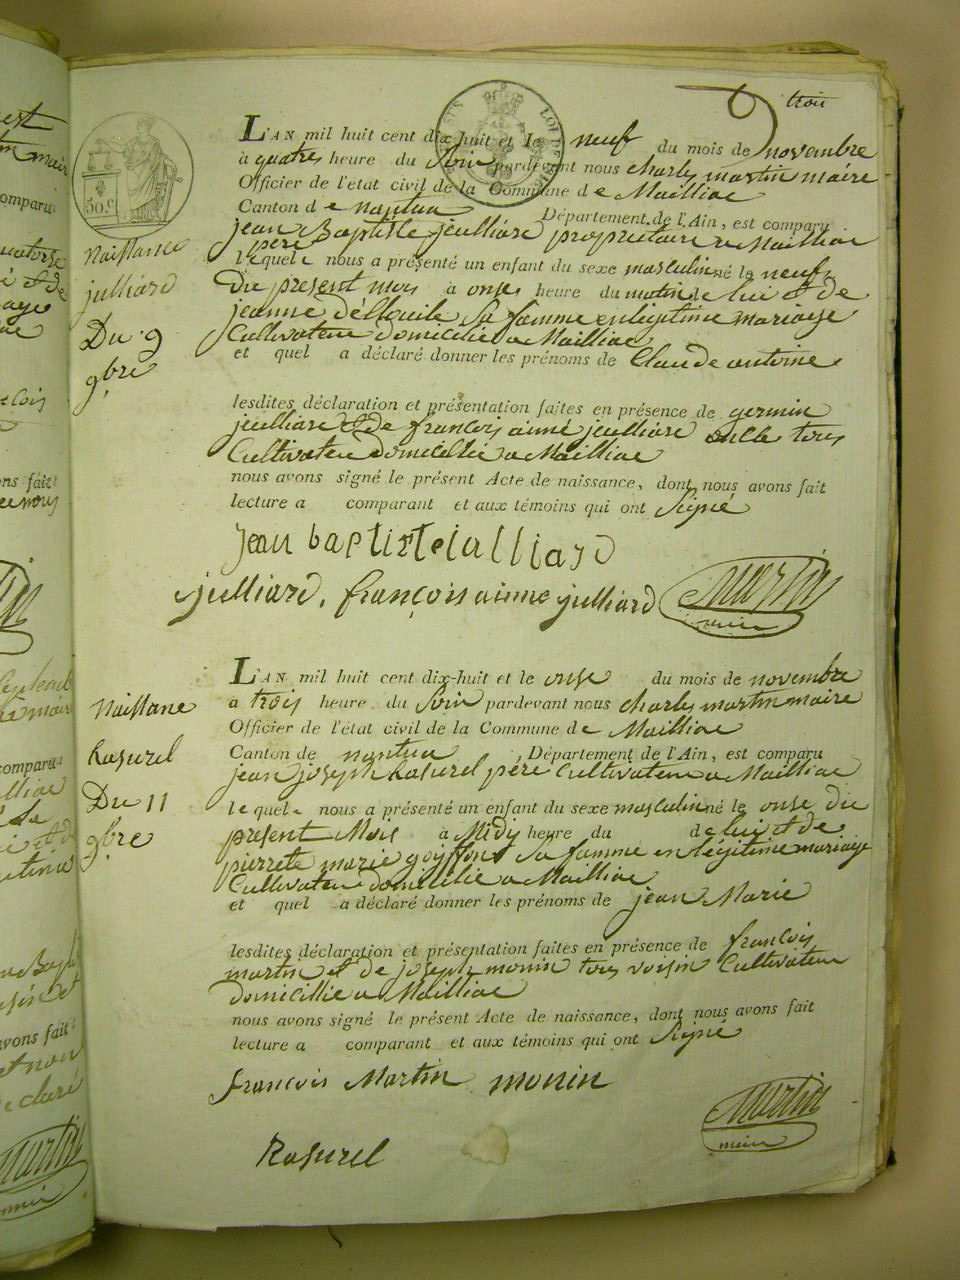 trois
50.c
Naissance
julliard
Du 9
9bre
L'AN mil huit cent dix-huit et le neuf du mois de novembre
à quatres heure du soir pardevant nous charles martin maire
Officier de l'état civil de la Commune de Mailliac
Canton de nantua Département de l'Ain, est comparu
jean Baptiste jeulliard propriétaire a Mailliac
père
lequel nous a présenté un enfant du sexe masculin né le neuf
Du present mois à onse heure du matin de lui et de
jeanne sa famme en légitime mariage
Cultivateur domicilié a Mailliac
et quel a déclaré donner les prénoms de Claude antoine
lesdites déclaration et présentation faites en présence de germin
jeulliard et de françois aimé jeulliard tous
Cultivateur domicillié a Mailliac
nous avons signé le présent Acte de naissance, dont nous avons fait
lecture a comparant et aux témoins qui ont Signé
jean baptiste julliard
julliard. françois aimé julliard Martin
maire
Naissane
Rasurel
Du 11
9bre
L'AN mil huit cent dix-huit et le onse du mois de novembre
à trois heure du soir pardevant nous charles martin maire
Officier de l'état civil de la Commune de Mailliac
Canton de nantua , Département de l'Ain, est comparu
jean joseph Rasurel père Cultivateur a Mailliac
lequel nous a présenté un enfant du sexe masculin né le onse du
présent Mois à Midy heure du de lui et de
pierrete marie goyffon sa famme en légitime mariage
Cultivateur domicilié a Mailliac
et quel a déclaré donner les prénoms de jean Marie
lesdites déclaration et présentation faites en présence de françois
martin et de joseph monin tous voisin Cultivateur
domicillié a Mailliac
nous avons signé le présent Acte de naissance, dont nous avons fait
lecture a comparant et aux témoins qui ont Signé
françois Martin monin
Martin
maire
Rasurel